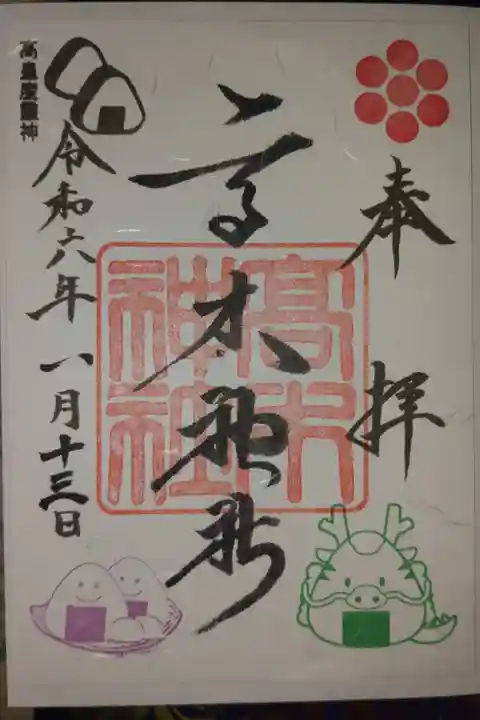 奉拝
高木神社
高木神社
令和六年 八月十三日
高皇産靈神